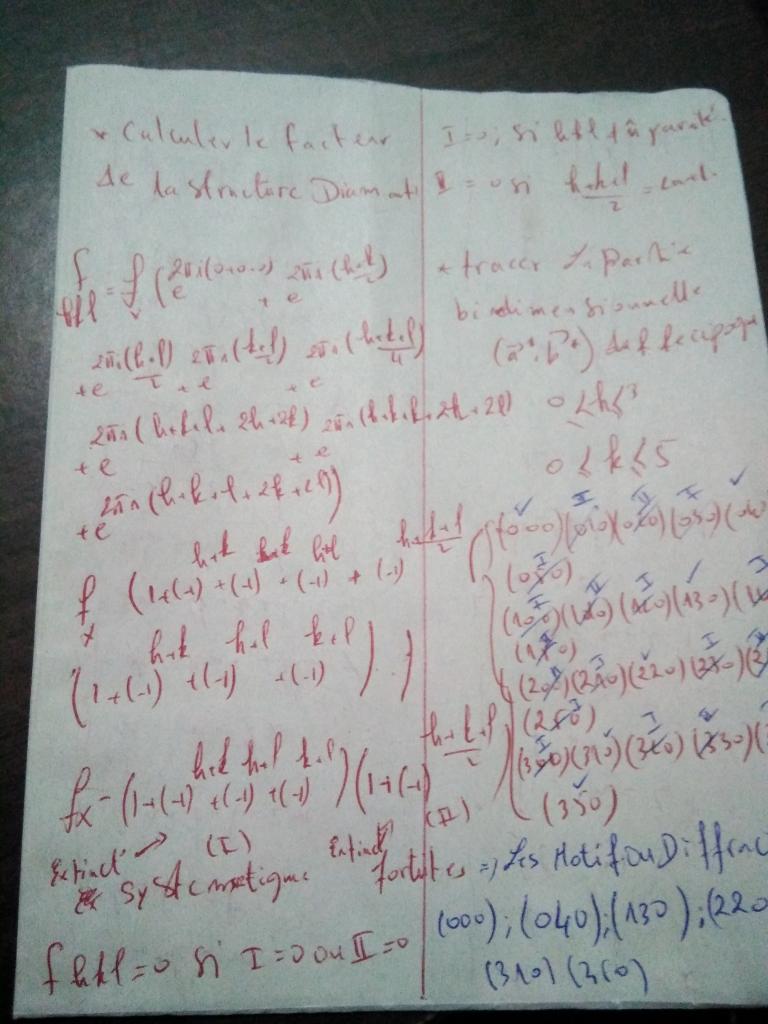 * Calculer le facteur
de la structure Diamant
f hkl = f x (e 2πi(0+0+0) + e 2πi(h+k/2)
+ e 2πi(h+l)/2 + e 2πi(k+l/2) + e 2πi(h+k+l/4)
+ e 2πi(h+k+l+2h+2k) + e 2πi(h+k+l+2h+2l)
+ e 2πi(h+k+l+2k+2l))
f x (1+(-1) h+k +(-1) h+k +(-1) h+l + (-1) h+k+l/2
(1+(-1) h+k +(-1) h+l +(-1) k+l ) )
fx = (1+(-1) h+k +(-1) h+l +(-1) k+l )(1+(-1) h+k+l/2 )
(I) (II)
Extinct → systematique Extinct fortuites
f hkl = 0 si I=0 ou II=0
I=0, si hkl
II = 0 si h+k+l/2 =
* tracer la partie
bidimensionnelle
(a*, b*)
0 ≤ h ≤ 3
0 ≤ k ≤ 5
(000)(010)(020)(030)(040)
(050)
(100)(110)(120)(130)
(150)
(200)(210)(220)(230)
(250)
(300)(310)(320)(330)
(350)
=> Les Motif Du Diffrac
(000); (040); (130); (220
(310) (350)